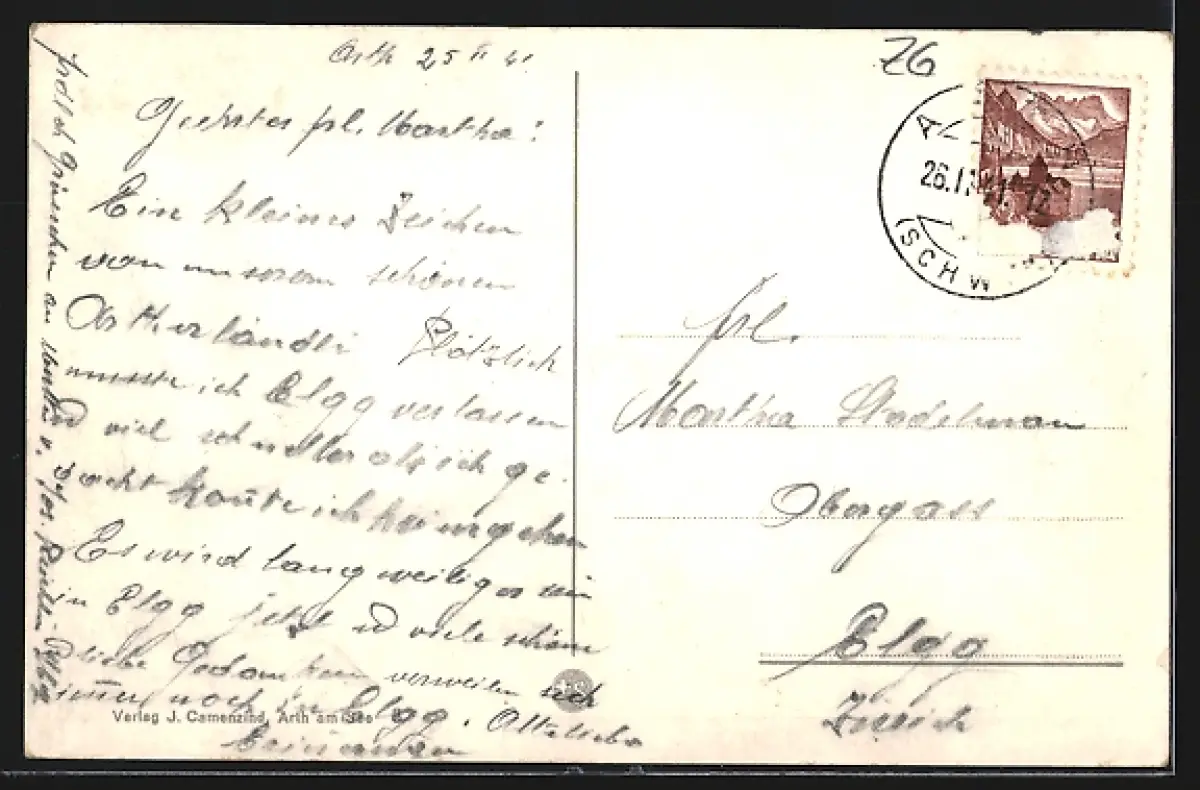 Arth 25 II 41
Geehrtes frl. Martha!
Ein kleines Zeichen
von unserem schönen
Artherländli Plötzlich
musste ich Elgg verlassen
viel schneller als ich ge-
dacht konnte ich heimgehen
Es wird langweiliger sein
in Elgg jetzt viele schöne
liebe Gedanken verweilen sich
immer noch in Elgg.
Verlag J. Camenzind, Arth am See
ZG
A
26.II.41. 12
(SCHW
frl.
Martha Stadelman
Obergass
Elgg
Zürich